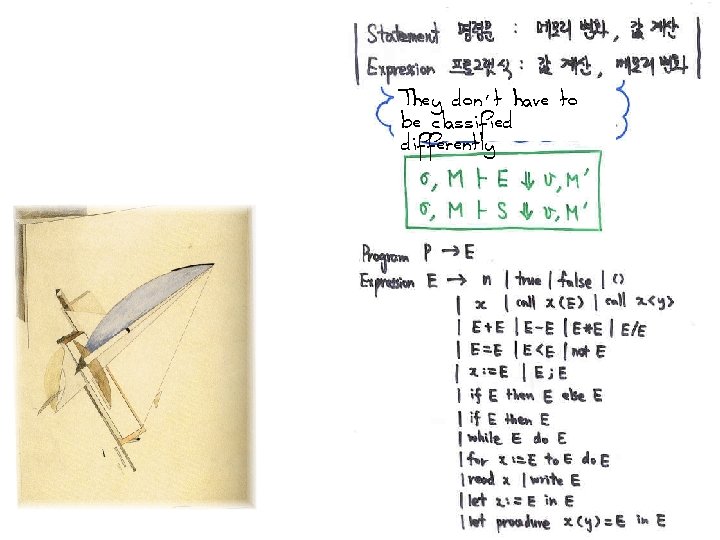 Statement 명령문 : 메모리 변화, 값 계산
Expression 프로그램식 : 값 계산, 메모리 변화
They don't have to
be classified
differently
σ, M ⊢ E ⇓ v, M'
σ, M ⊢ S ⇓ v, M'
Program P → E
Expression E → n | true | false | ()
| x | call x(E) | call x<y>
| E+E | E-E | E*E | E/E
| E=E | E<E | not E
| x:=E | E;E
| if E then E else E
| if E then E
| while E do E
| for x:=E to E do E
| read x | write E
| let x:=E in E
| let procedure x(y)=E in E